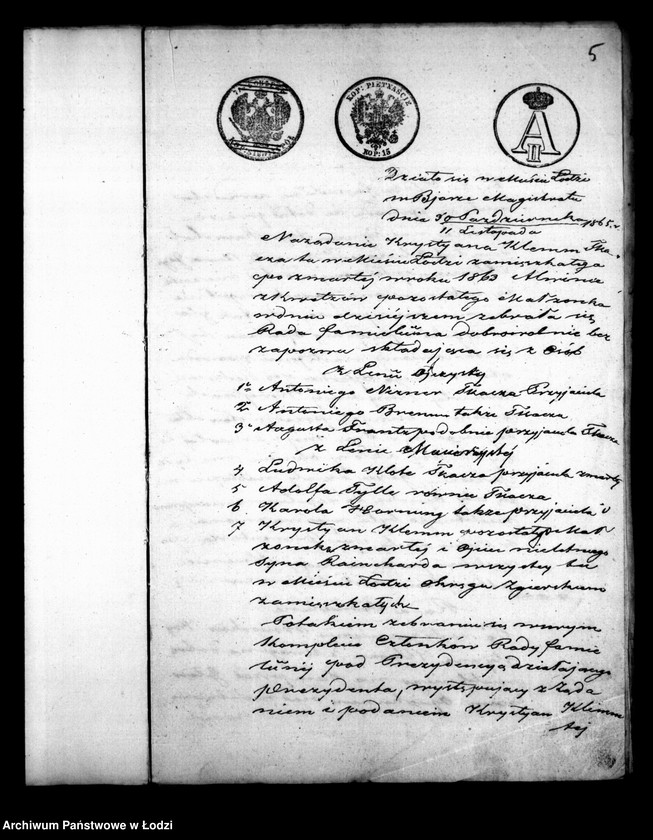 5
KOP: PIĘTNAŚCIE
KOP: 15
A II
Działo się w Mieście Łodzi
w Biórze Magistratu
dnia Października 1865 r.
11 Listopada
Na żądanie Krystyana Klemm Tka
cza tu w Mieście Łodzi zamieszkałego
po zmarłej w roku 1863
z pozostałego Małżonka
w dniu dzisiejszem zebrała się
Rada familijna dobrowolnie bez
zapozwu składająca się z Osób
z Linii Ojczystej
1o Antoniego Nizner Tkacza Przyjaciela
2o Antoniego Brenn także Tkacza
3o Augusta Frantz podobnie przyjaciela Tkacza
z Linii Macierzystej
4 Ludwika Klote Tkacza przyjaciela zmarłej
5 Adolfa Tylle równie Tkacza
6 Karola Hornung także przyjaciela i
7 Krystyan Klemm pozostały Mał
żonek zmarłej i Ojciec nieletniego
Syna Raincharda wszyscy tu
w Mieście Łodzi Okręgu Zgierskiego
zamieszkałych
Po takiem zebraniu się w
Komplecie Członków Rady fami
lijnej pod Prezydencyą działającego
Prezydenta, występujący z żąda
niem i podaniem Krystyan Klemm
Archiwum Państwowe w Łodzi